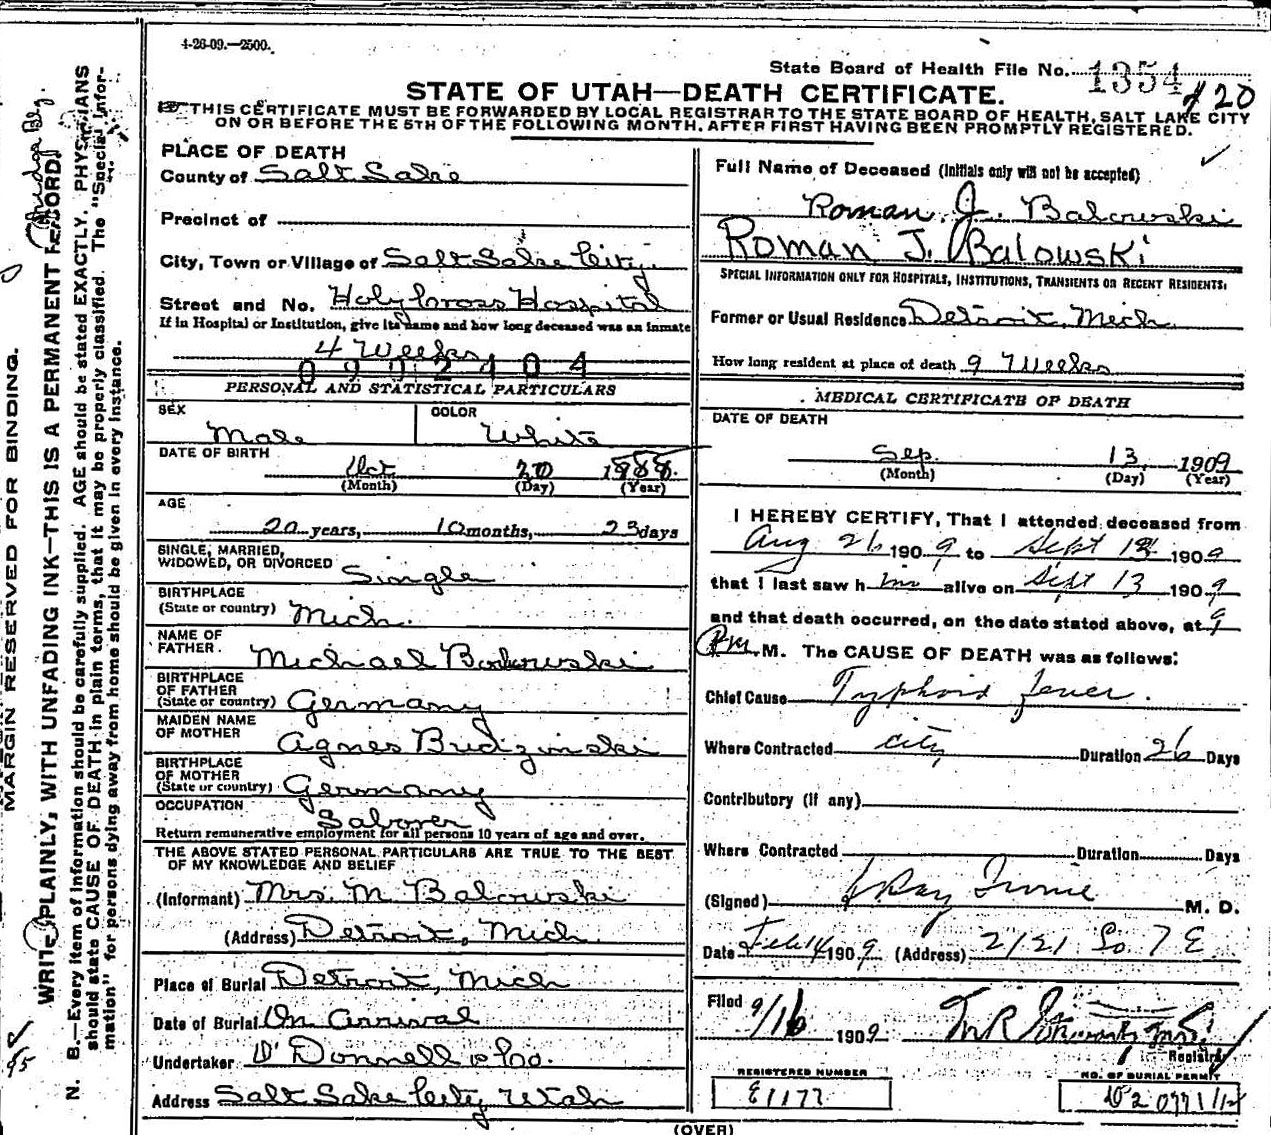 4-26-09.—2500.
State Board of Health File No. 1354
120
STATE OF UTAH—DEATH CERTIFICATE.
THIS CERTIFICATE MUST BE FORWARDED BY LOCAL REGISTRAR TO THE STATE BOARD OF HEALTH, SALT LAKE CITY
ON OR BEFORE THE 5TH OF THE FOLLOWING MONTH, AFTER FIRST HAVING BEEN PROMPTLY REGISTERED.
MARGIN RESERVED FOR BINDING.
WRITE PLAINLY, WITH UNFADING INK—THIS IS A PERMANENT RECORD.
N. B.—Every item of information should be carefully supplied. AGE should be stated EXACTLY. PHYSICIANS
should state CAUSE OF DEATH in plain terms, that it may be properly classified. The "Special Infor-
mation" for persons dying away from home should be given in every instance.
95
PLACE OF DEATH
County of Salt Lake
Precinct of
City, Town or Village of Salt Lake City
Street and No. Holy Cross Hospital
If in Hospital or Institution, give its name and how long deceased was an inmate
4 Weeks
0902404
PERSONAL AND STATISTICAL PARTICULARS
SEX COLOR
Male White
DATE OF BIRTH
Oct 20 1888.
(Month) (Day) (Year)
AGE
20 years, 10 months, 23 days
SINGLE, MARRIED,
WIDOWED, OR DIVORCED Single
BIRTHPLACE
(State or country) Mich.
NAME OF
FATHER. Michael Balowski
BIRTHPLACE
OF FATHER
(State or country) Germany
MAIDEN NAME
OF MOTHER Agnes Budzinski
BIRTHPLACE
OF MOTHER
(State or country) Germany
OCCUPATION
Laborer
Return remunerative employment for all persons 10 years of age and over.
THE ABOVE STATED PERSONAL PARTICULARS ARE TRUE TO THE BEST
OF MY KNOWLEDGE AND BELIEF
(Informant) Mrs. M. Balowski
(Address) Detroit, Mich.
Place of Burial Detroit, Mich
Date of Burial On arrival
Undertaker O'Donnell & Co.
Address Salt Lake City Utah
Full Name of Deceased (Initials only will not be accepted)
Roman J. Balowski
ROMAN J. BALOWSKI
SPECIAL INFORMATION ONLY FOR HOSPITALS, INSTITUTIONS, TRANSIENTS OR RECENT RESIDENTS:
Former or Usual Residence Detroit, Mich.
How long resident at place of death 9 Weeks
MEDICAL CERTIFICATE OF DEATH
DATE OF DEATH
Sep. 13, 1909
(Month) (Day) (Year)
I HEREBY CERTIFY, That I attended deceased from
Aug 26 1909 to Sept 13 1909
that I last saw him alive on Sept 13 1909
and that death occurred, on the date stated above, at 9
P.M. M. The CAUSE OF DEATH was as follows:
Chief Cause Typhoid fever.
Where Contracted city Duration 26 Days
Contributory (if any)
Where Contracted Duration Days
(Signed) J Ray Irvine M. D.
Date Feb 14 1909 (Address) 2121 So. 7 E
Filed 9/16 1909
Registrar
REGISTERED NUMBER
E1177
NO. OF BURIAL PERMIT
(OVER)